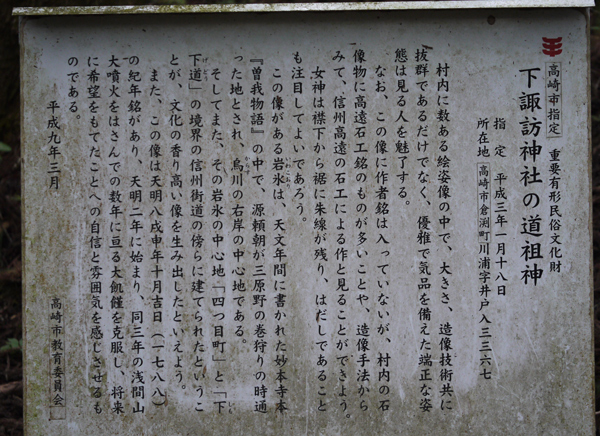 高崎市指定 重要有形民俗文化財
下諏訪神社の道祖神
指定 平成三年一月十八日
所在地 (高崎市倉渕町川浦字井戸入三三六七
村内に数ある絵姿像の中で、大きさ、造像技術共に
抜群であるだけでなく、優雅で気品を備えた端正な姿
態は見る人を魅了する。
なお、この像に作者銘は入っていないが、村内の石
像物に高遠石工銘のものが多いことや、造像手法から
みて、信州高遠の石工による作と見ることができよう。
女神は襟下から裾に朱線が残り、はだしであること
も注目してよいであろう。
この像がある岩氷は、天文年間に書かれた妙本寺本
『曽我物語』の中で、源頼朝が三原野の巻狩りの時通
った地とされ、烏川の右岸の中心地である。
そしてまた、その岩氷の中心地「四つ目町」と「下
下道」の境界の信州街道の傍らに建てられたというこ
とが、文化の香り高い像を生み出したといえよう。
また、この像は天明八戊申年十月吉日(一七八八)
の紀年銘があり、天明二年に始まり、同三年の浅間山
大噴火をはさんでの数年に亘る大飢饉を克服し、将来
に希望をもてたことへの自信と雰囲気を感じさせるも
のである。
平成九年三月
高崎市教育委員会